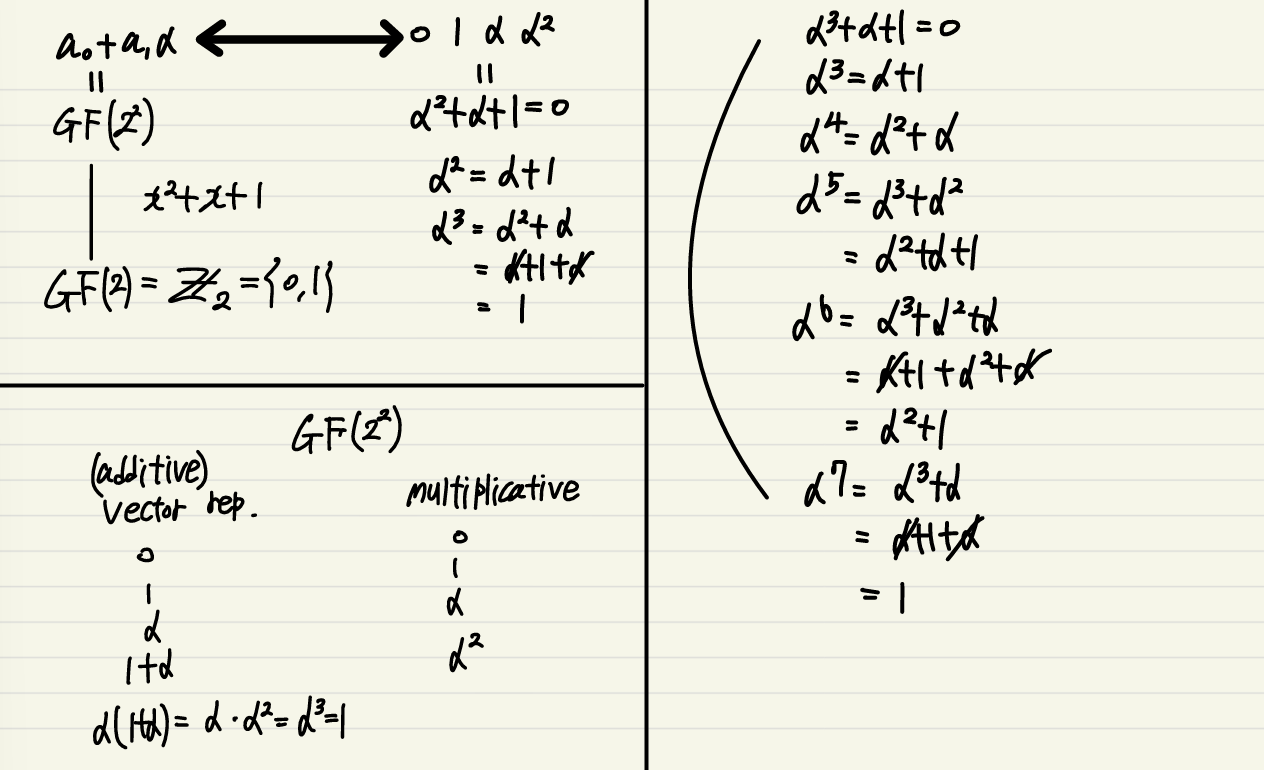 a₀+a₁α ⟷ 0 1 α α²
= =
GF(2²) α²+α+1=0
x²+x+1
GF(2)=ℤ₂={0,1}
α²=α+1
α³=α²+α
=α+1+α
=1
GF(2²)
(additive)
vector rep. multiplicative
0 0
1 1
α α
1+α α²
α(1+α)=α·α²=α³=1
α³+α+1=0
α³=α+1
α⁴=α²+α
α⁵=α³+α²
=α²+α+1
α⁶=α³+α²+α
=α+1+α²+α
=α²+1
α⁷=α³+α
=α+1+α
=1